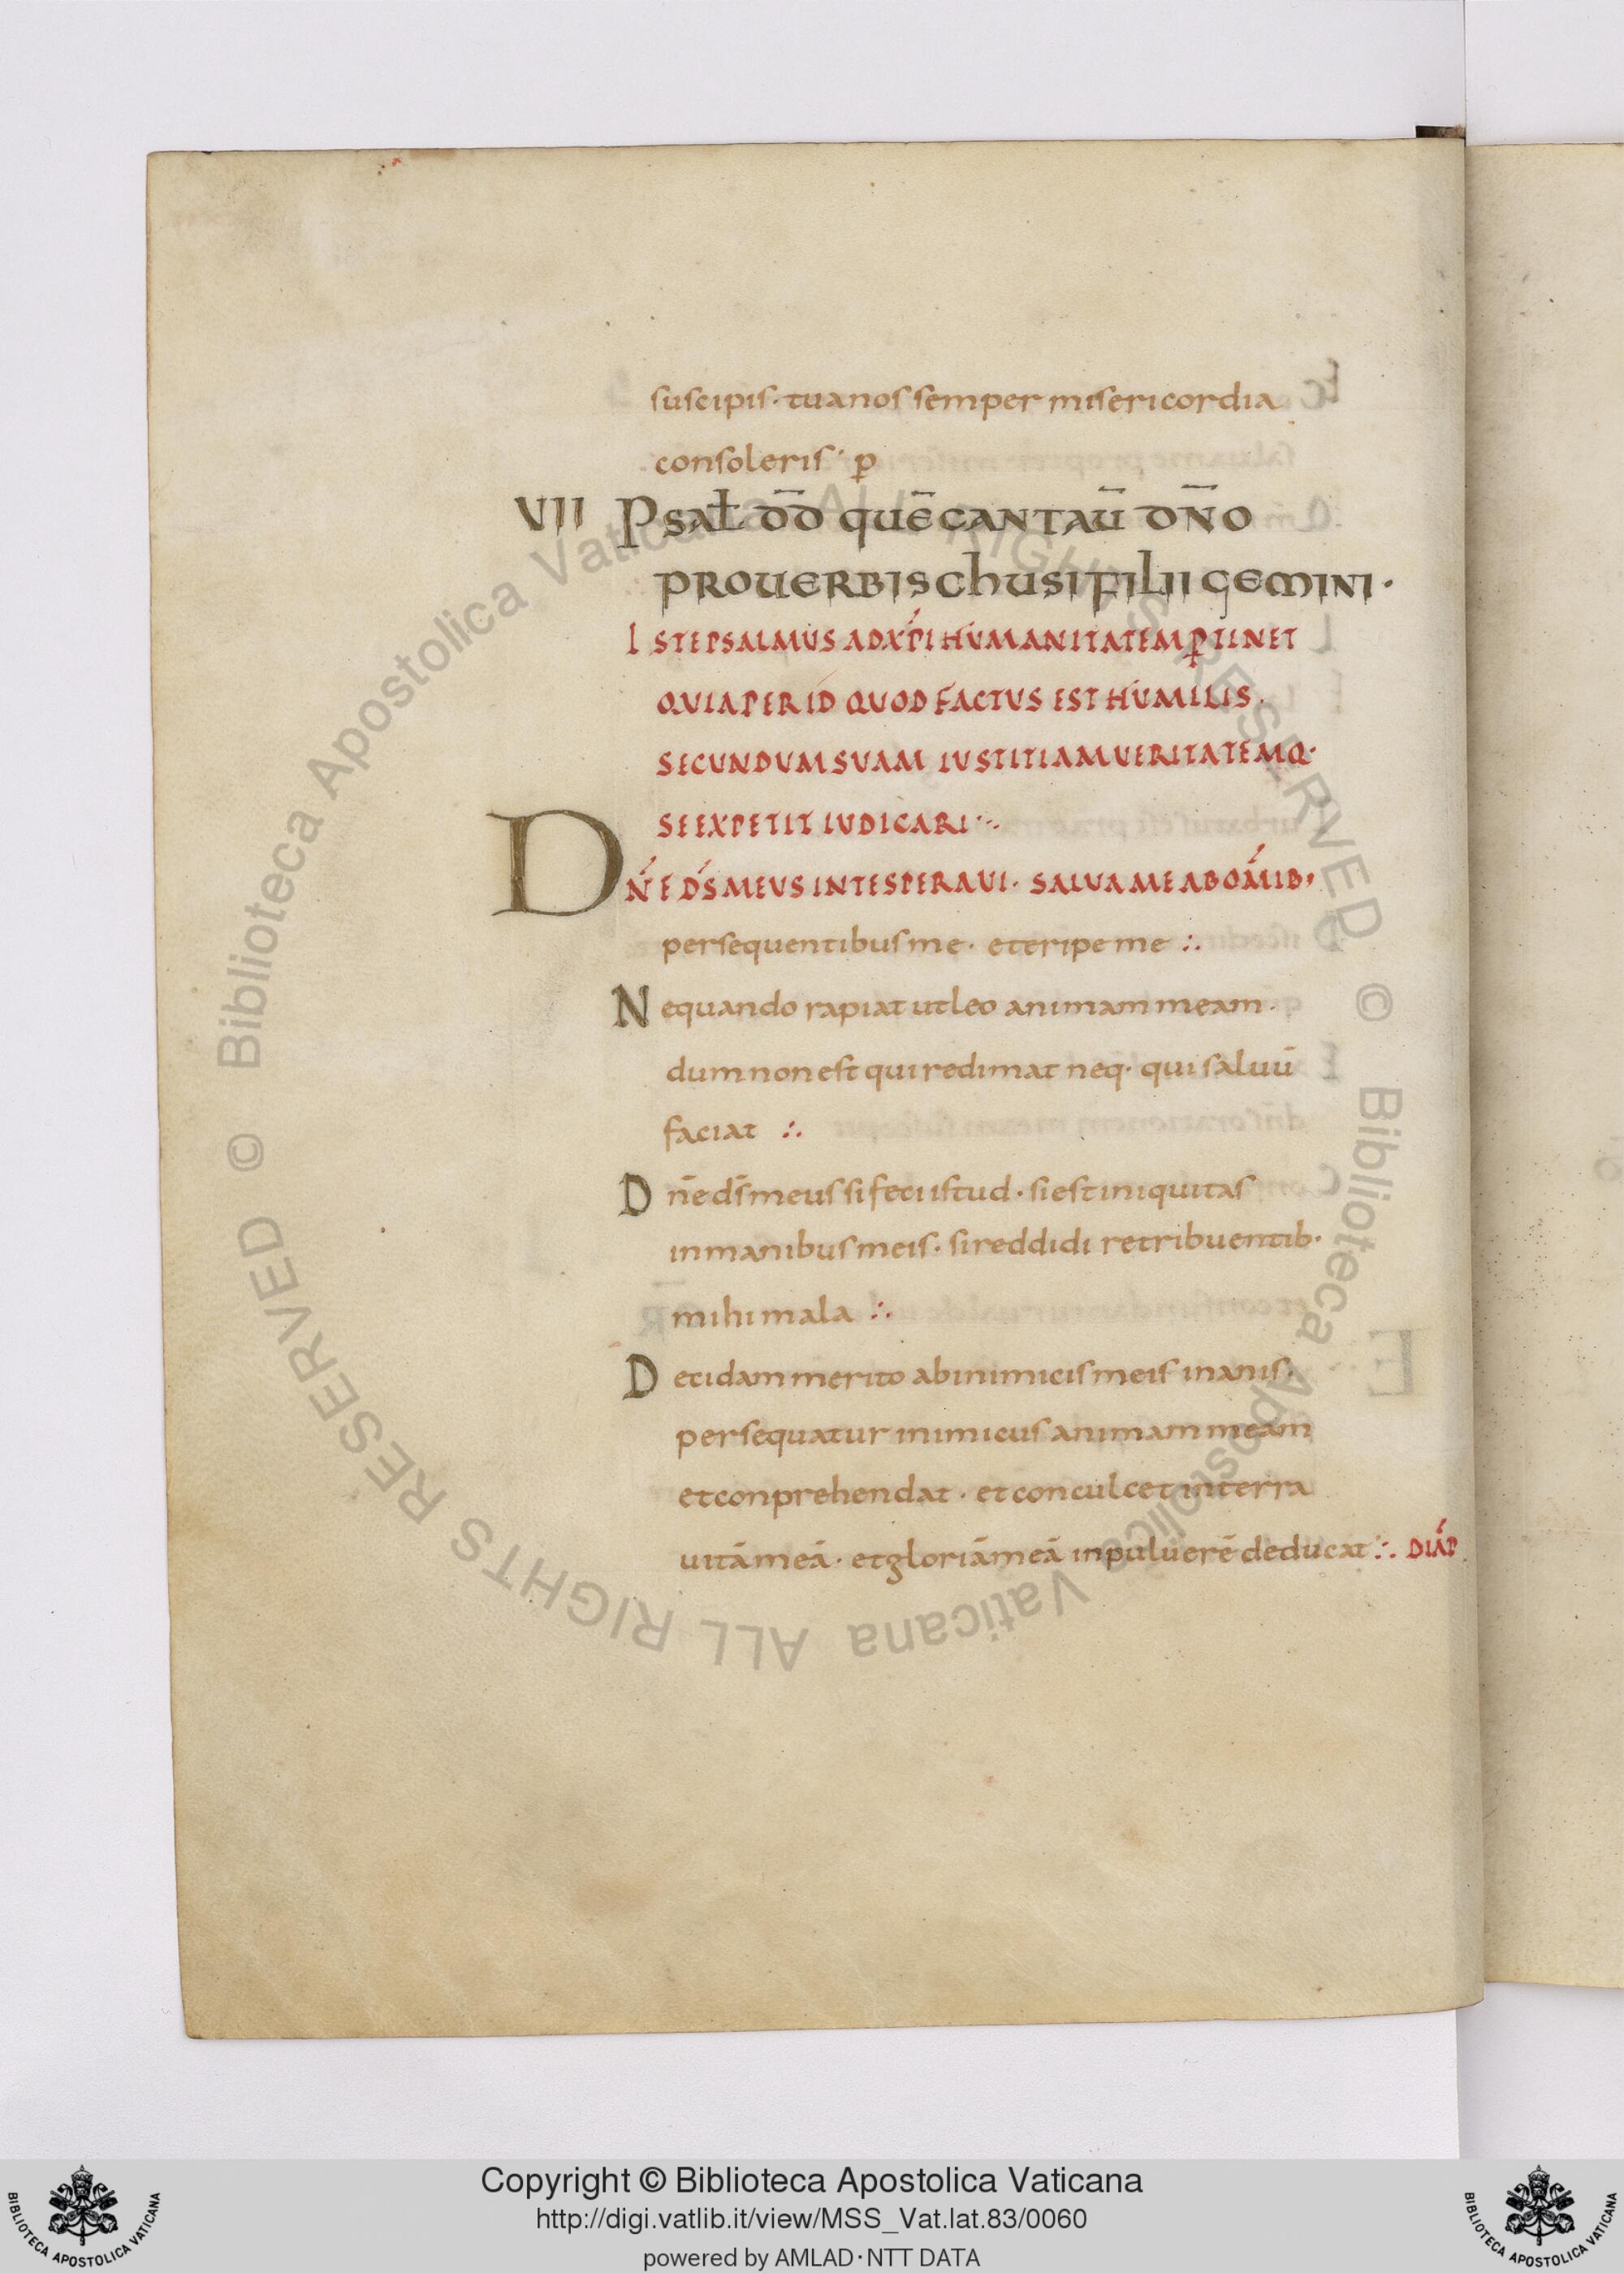 suscipis · tua nos semper misericordia
consoleris · p̱
VII Psał d̄d quē cantaū dn̄o
prouerbis chusi filii gemini ·
ISTE PSALMUS AD XṔI HUMANITATEM ꝑTINET
QUIA PER ID QUOD FACTUS EST HUMILIS ·
SECUNDUM SUAM IUSTITIAM UERITATEMQ·
SE EXPETIT IUDICARI ·:·
DŃE DŚ MEUS IN TE SPERAUI · SALUA ME AB OḾIB,
persequentibus me · et eripe me ∴
Nequando rapiat ut leo animam meam ·
dum non est qui redimat neq· qui saluū
faciat ∴
Dn̄e ds̄ meus si feci istud · si est iniquitas
in manibus meis · si reddidi retribuentib·
mihi mala ∴
Decidam merito ab inimicis meis inanis ·
persequatur inimicus animam meam
et conprehendat · et conculcet in terra
uitā meā · et gloriā meā in puluerē deducat ∴ DIÁP
Biblioteca Apostolica Vaticana ALL RIGHTS RESERVED © Biblioteca Apostolica Vaticana ALL RIGHTS RESERVED ©
Copyright © Biblioteca Apostolica Vaticana
http://digi.vatlib.it/view/MSS_Vat.lat.83/0060
powered by AMLAD·NTT DATA
BIBLIOTECA APOSTOLICA VATICANA
BIBLIOTECA APOSTOLICA VATICANA